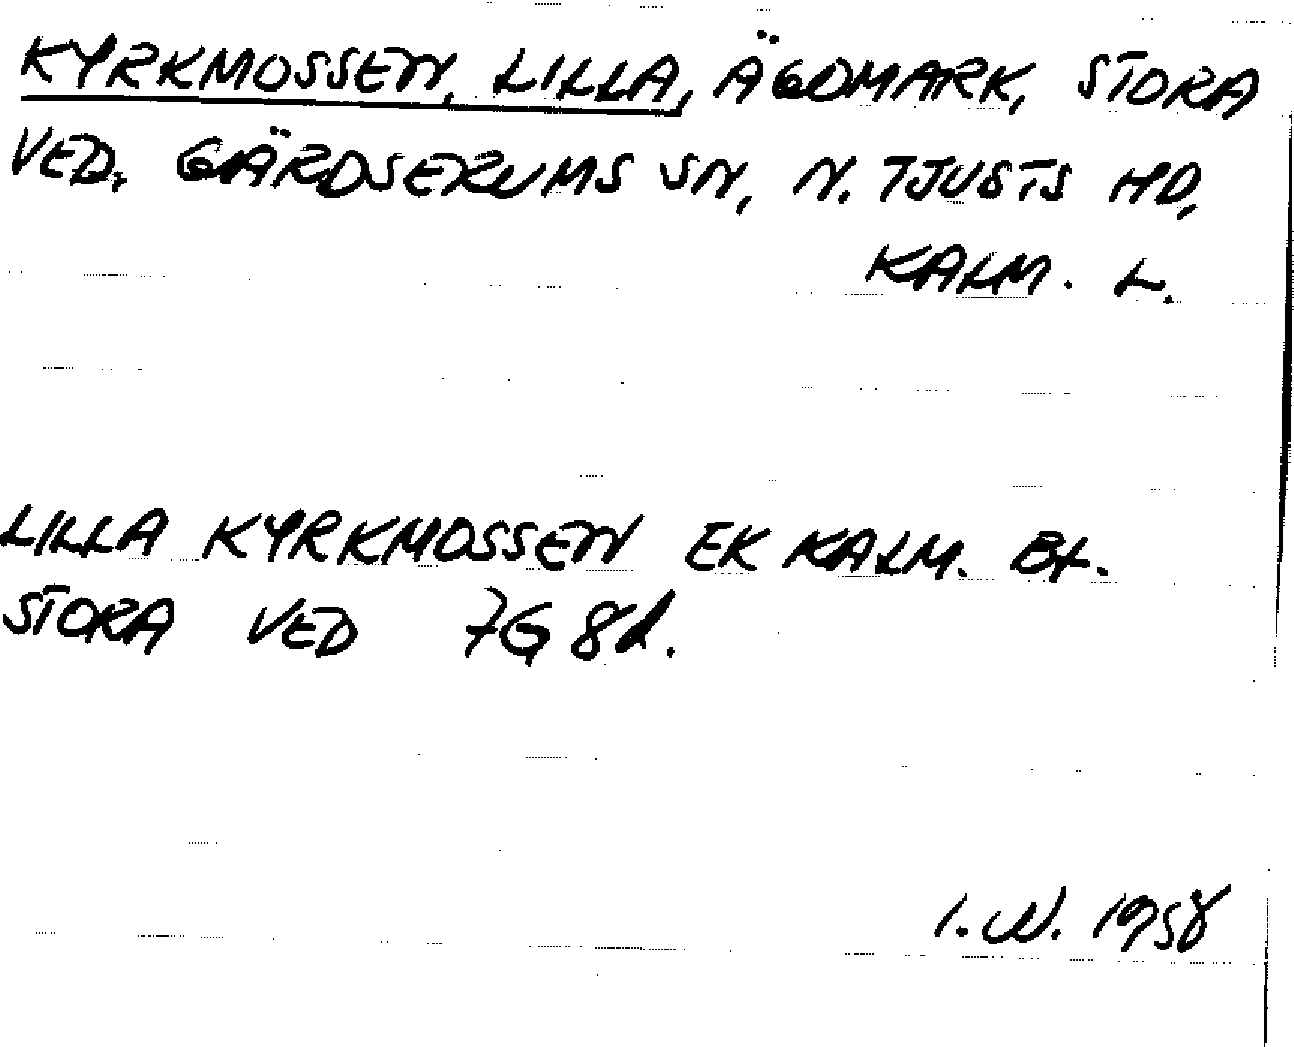 KYRKMOSSEN, LILLA, ÄGOMARK, STORA
VED. GÄRDSERUMS SN, N. TJUSTS HD,
KALM. L.
LILLA KYRKMOSSEN EK KALM. BL.
STORA VED 7G 8d.
I. W. 1958